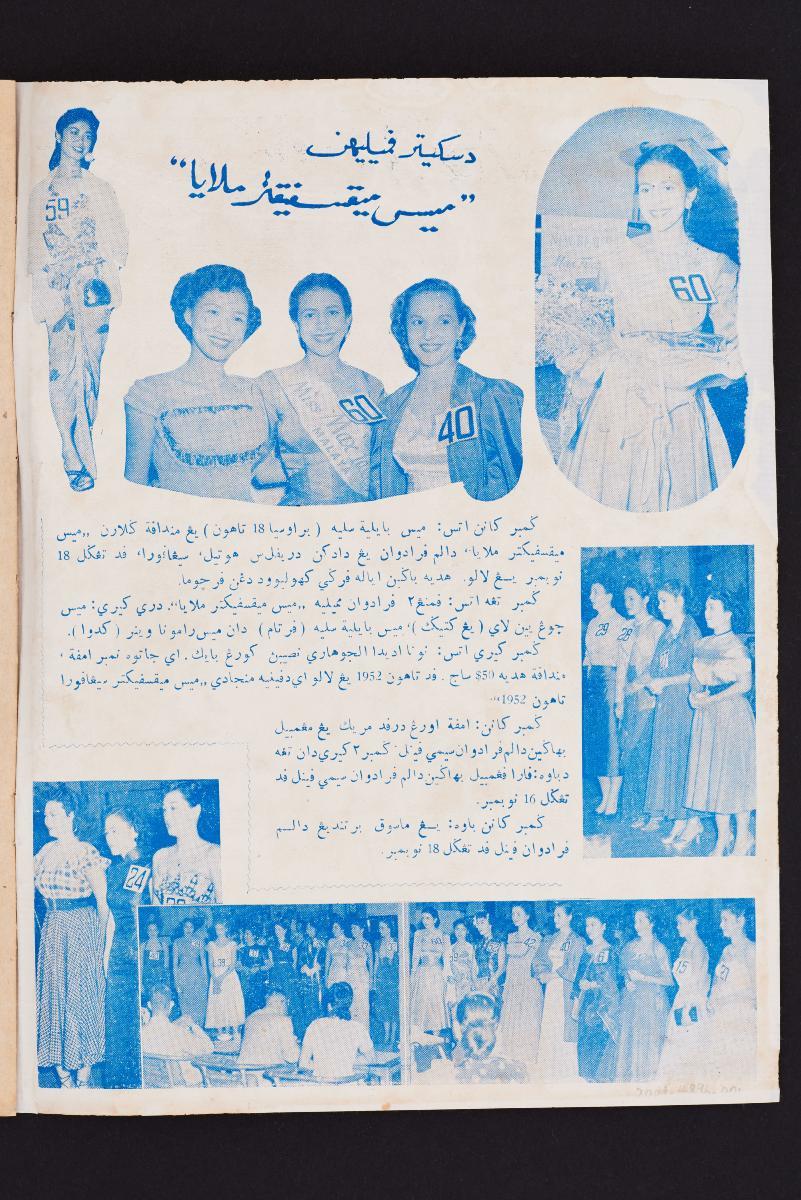 دسكيتر ڤميليهن
”ميس ميقسفيقتر ملايا“
59
60
Miss
MALAYA
60
40
ݢمبر كانن اتس: ميس بايلية سليه (براوسيا 18 تاهون) يڠ منداڤة ݢلارن ,,ميس
ميقسفيكتر ملايا“ دالم ڤرادوان يڠ دادكن دريفلس هوتيل، سيڠاڤورا، ڤد تڠݢل 18
نوبمبر يڠ لالو. هديه باݢين اياله ڤرݢي كهوليوود دڠن ڤرچوما.
ݢمبر تڠه اتس: ڤمنڠ٢ ڤرادوان مميليه ,,ميس ميقسفيكتر ملايا“. دري كيري: ميس
چوڠ يين لاي (يڠ كتيݢ)، ميس بايلية سليه (ڤرتام) دان ميس رامونا وينر (كدوا).
ݢمبر كيري اتس: نونا اديدا الجوهاري نصيبن كورڠ بايك. اي جاتوه نمبر امڤة ،
منداڤة هديه $50 ساج. ڤد تاهون 1952 يڠ لالو اي دڤيليه منجادي ,,ميس ميقسفيكتر سيڠاڤورا
تاهون 1952“.
ݢمبر كانن: امڤة اورڠ درڤد مريك يڠ مڠمبيل
بهاݢين دالم ڤرادوان سيمي فينل. ݢمبر ٢ كيري دان تڠه
دباوه: ڤارا ڤڠمبيل بهاݢين دالم ڤرادوان سيمي فينل ڤد
تڠݢل 16 نوبمبر.
ݢمبر كانن باوه: يڠ ماسوق برتنديڠ دالم
ڤرادوان فينل ڤد تڠݢل 18 نوبمبر.
29
24
42
15
21